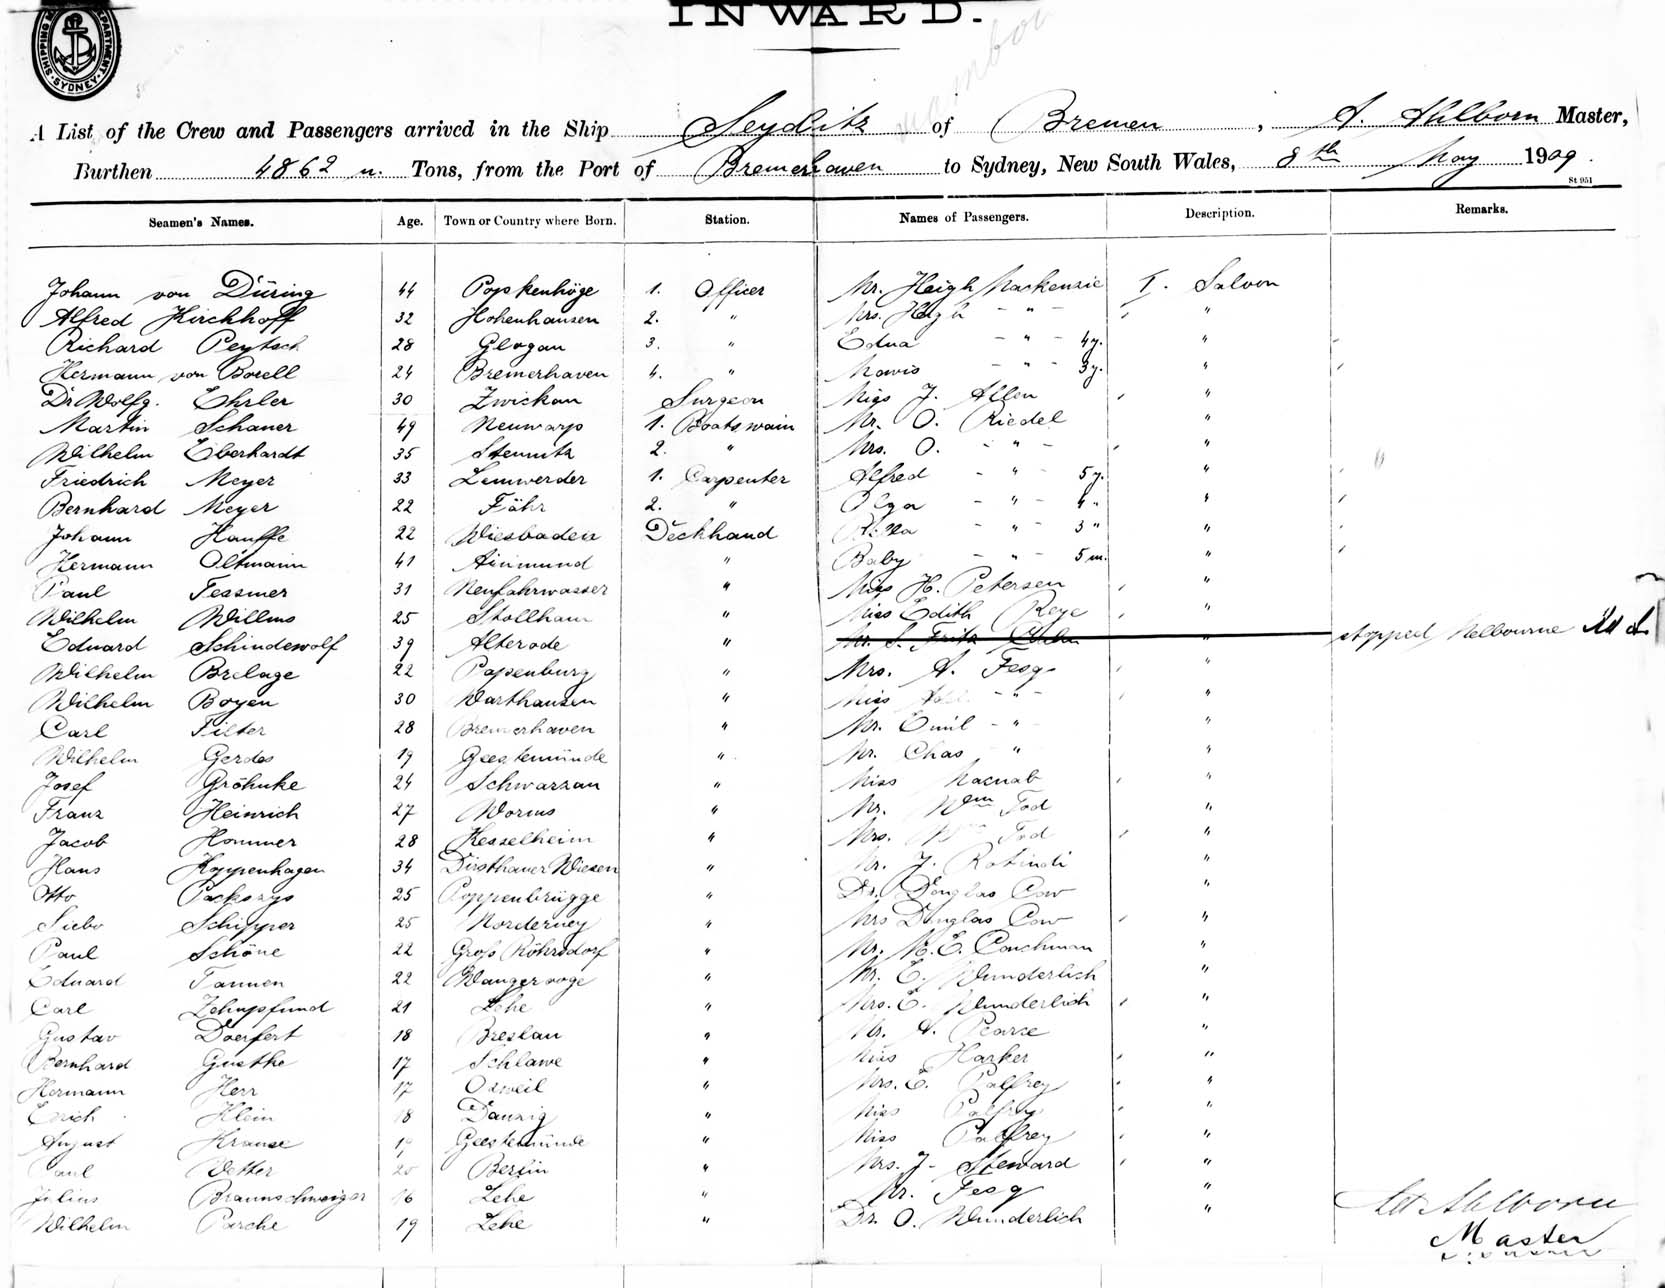 INWARD.
SHIPPING DEPARTMENT SYDNEY
A List of the Crew and Passengers arrived in the Ship Seydlitz of Bremen, A. Ahlborn Master,
Burthen 4862 n. Tons, from the Port of Bremerhaven to Sydney, New South Wales, 8th May 1909.
St 951
Seamen's Names. Age. Town or Country where Born. Station. Names of Passengers. Description. Remarks.
Johann von Düring 44 Popkenhöge 1. Officer Mr. Heigh Mackenzie I. Saloon
Alfred Kirchhoff 32 Hohenhausen 2. " Mrs. Heigh - " - "
Richard Peytsch 28 Glogau 3. " Edna - " - 4y. "
Hermann von Borell 24 Bremerhaven 4. " Mavis - " - 3y. "
Dr Wolfg. Ehrler 30 Zwickau Surgeon Miss J. Allen "
Martin Schauer 49 Neuwarp 1. Boatswain Mr. O. Riedel "
Wilhelm Eberhardt 35 Stennitz 2. " Mrs. O. - " - "
Friedrich Meyer 33 Lemwerder 1. Carpenter Alfred - " - 5y. "
Bernhard Meyer 22 Fähr 2. " Olga - " - 4 " "
Johann Hauffe 22 Wiesbaden Deckhand - " - 3 " "
Hermann Oltmann 41 " Baby - " - 5 m. "
Paul Tessmer 31 Neufahrwasser " Miss H. Petersen "
Wilhelm Willms 25 Stollham " Miss Edith Reye "
Eduard Schindewolf 39 Alterode " Mr. S. Fritz " stopped Melbourne
Wilhelm Brelage 22 Papenburg " Mrs. A. Fesq "
Wilhelm Boyen 30 Warthausen " Miss - " - "
Carl Filter 28 Bremerhaven " Mr. Emil - " - "
Wilhelm Gerdes 19 Geestemünde " Mr. Chas " "
Josef Gröhnke 24 Schwarzau " Miss Macnab "
Franz Heinrich 27 Worms " Mr. Wm Tod "
Jacob Hommer 28 Kesselheim " Mrs. Wm Tod "
Hans Koppenhagen 34 Dirsthauer Wiesen " Mr. J. Rotindi "
Otto 25 Poppenbrügge " Dr. Douglas Cow "
Siebo Schipper 25 Norderney " Mrs Douglas Cow "
Paul Schöne 22 Groß Röhrsdorf " Mr. M. E. Couchman "
Eduard Tannen 22 Wangerooge " Mr. E. Wunderlich "
Carl Zehnpfund 21 Lehe " Mrs. E. Wunderlich "
Gustav Doerfert 18 Breslau " Mr. A. Pearse "
Bernhard Guethe 17 Schlawe " Miss Harker "
Hermann Herr 17 Osweil " Mrs. E. Palfrey "
Erich Klein 18 Danzig " Miss Palfrey "
August Krause Geestemünde " Miss Palfrey "
Paul Vetter 20 Berlin " Mrs. J. Steward "
Julius Braunschweiger 16 Lehe " Mr. Fesq "
Wilhelm Parche 19 Lehe " Dr. O. Wunderlich "
Ahlborn
Master